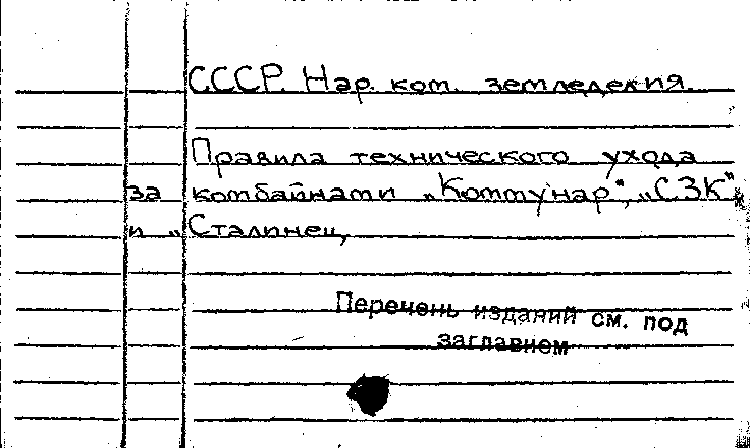 СССР. Нар. ком. земледелия.
Правила технического ухода
за комбайнами „Коммунар", „СЗК"
и „Сталинец,
Перечень изданий см. под
заглавием